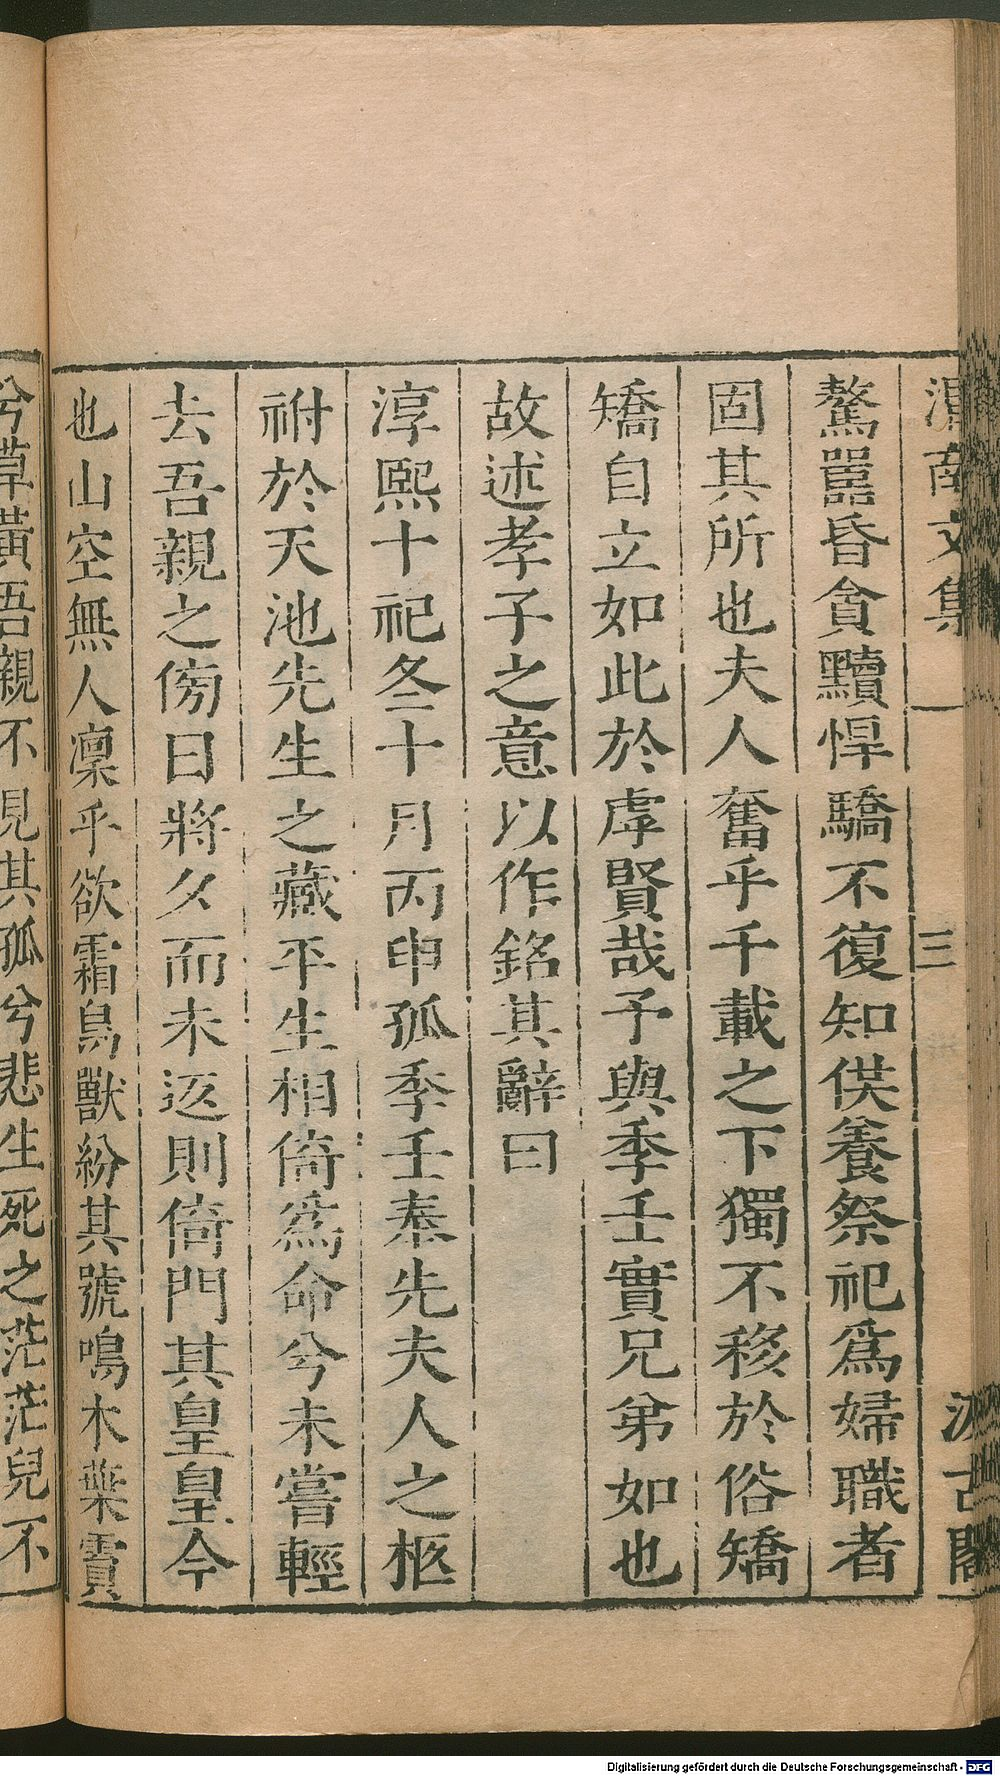 渭南文集
三
汲古閣
驁嚚昏貪黷悍驕不復知供養祭祀爲婦職者
固其所也夫人奮乎千載之下獨不移於俗矯
矯自立如此於虖賢哉予與季壬實兄弟如也
故述孝子之意以作銘其辭曰
淳熙十祀冬十月丙申孤季壬奉先夫人之柩
祔於天池先生之藏平生相倚爲命兮未嘗輕
去吾親之傍曰將久而未返則倚門其皇皇今
也山空無人凜乎欲霜鳥獸紛其號鳴木葉霣
兮草黃吾親不見其孤兮悲生死之茫茫兒不
Digitalisierung gefördert durch die Deutsche Forschungsgemeinschaft - DFG